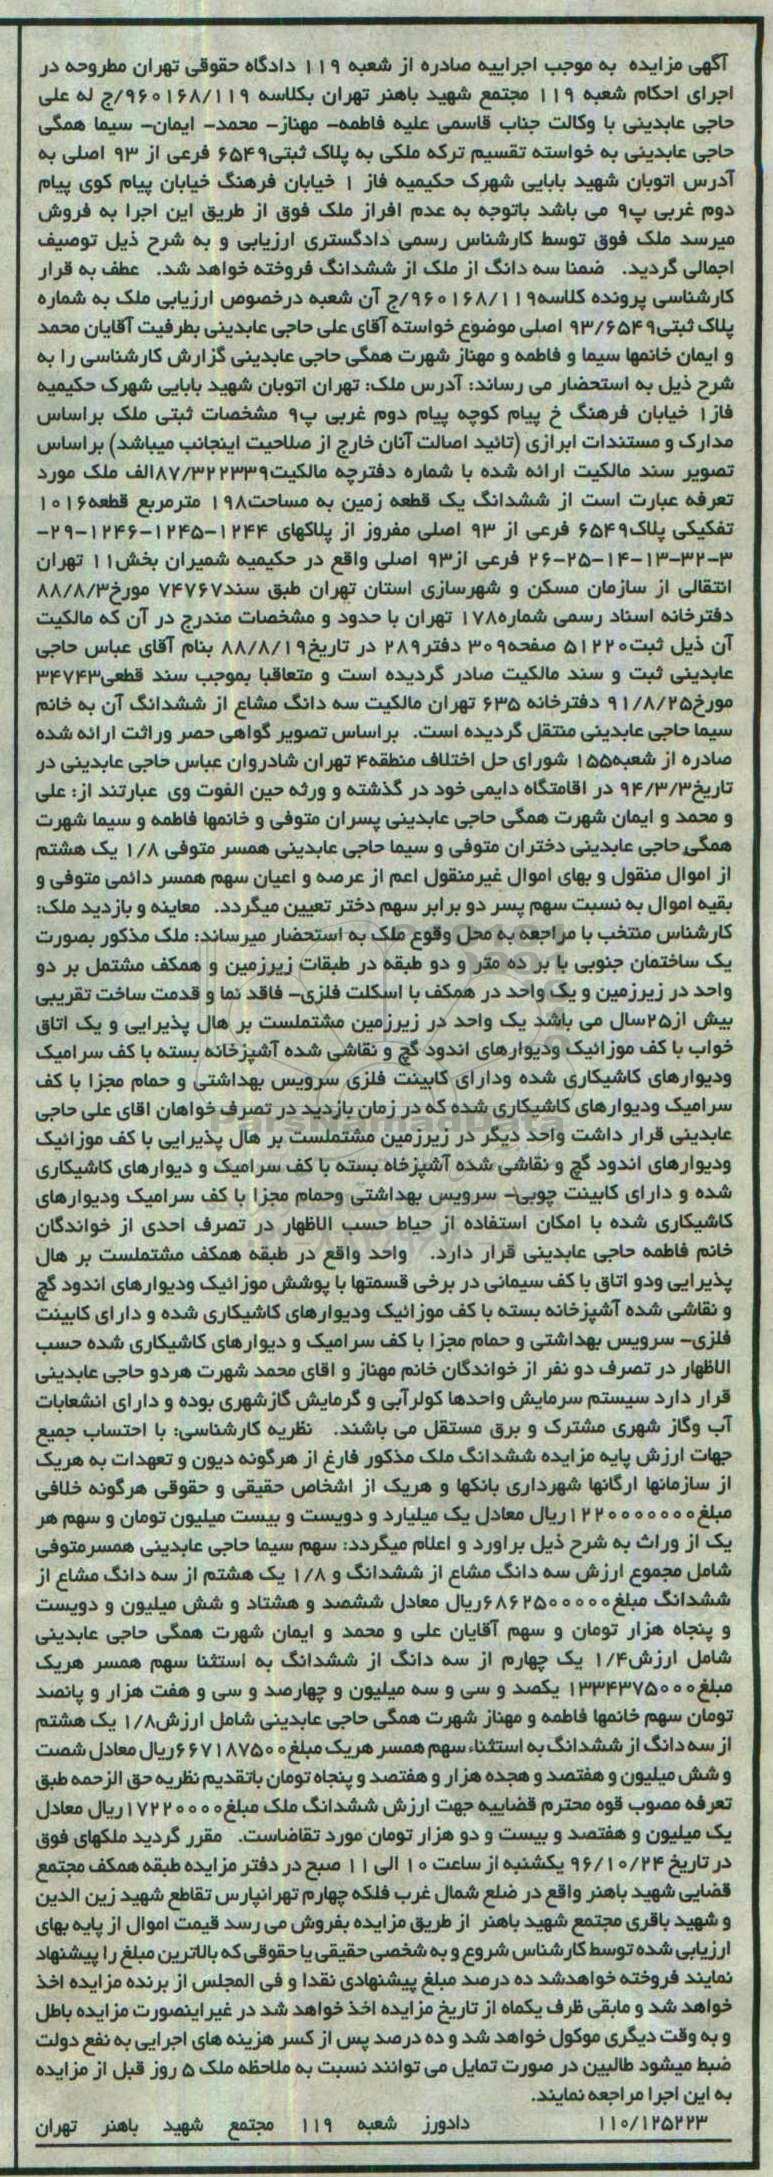 آگهی مزایده به موجب اجراییه صادره از شعبه ۱۱۹ دادگاه حقوقی تهران مطروحه در
اجرای احکام شعبه ۱۱۹ مجتمع شهید باهنر تهران بکلاسه ۹۶۰۱۶۸/۱۱۹/ج له علی
حاجی عابدینی با وکالت جناب قاسمی علیه فاطمه- مهناز- محمد- ایمان- سیما همگی
حاجی عابدینی به خواسته تقسیم ترکه ملکی به پلاک ثبتی۶۵۴۹ فرعی از ۹۳ اصلی به
آدرس اتوبان شهید بابایی شهرک حکیمیه فاز ۱ خیابان فرهنگ خیابان پیام کوی پیام
دوم غربی پ۹ می باشد باتوجه به عدم افراز ملک فوق از طریق این اجرا به فروش
میرسد ملک فوق توسط کارشناس رسمی دادگستری ارزیابی و به شرح ذیل توصیف
اجمالی گردید. ضمنا سه دانگ از ملک از ششدانگ فروخته خواهد شد. عطف به قرار
کارشناسی پرونده کلاسه۹۶۰۱۶۸/۱۱۹/ج آن شعبه درخصوص ارزیابی ملک به شماره
پلاک ثبتی۹۳/۶۵۴۹ اصلی موضوع خواسته آقای علی حاجی عابدینی بطرفیت آقایان محمد
و ایمان خانمها سیما و فاطمه و مهناز شهرت همگی حاجی عابدینی گزارش کارشناسی را به
شرح ذیل به استحضار می رساند: آدرس ملک: تهران اتوبان شهید بابایی شهرک حکیمیه
فاز۱ خیابان فرهنگ خ پیام کوچه پیام دوم غربی پ۹ مشخصات ثبتی ملک براساس
مدارک و مستندات ابرازی (تائید اصالت آنان خارج از صلاحیت اینجانب میباشد) براساس
تصویر سند مالکیت ارائه شده با شماره دفترچه مالکیت۸۷/۳۲۲۳۳۹الف ملک مورد
تعرفه عبارت است از ششدانگ یک قطعه زمین به مساحت۱۹۸ مترمربع قطعه۱۰۱۶
تفکیکی پلاک۶۵۴۹ فرعی از ۹۳ اصلی مفروز از پلاکهای ۱۲۴۴-۱۲۴۵-۱۲۴۶-۲۹-
۳-۳۲-۱۳-۱۴-۲۵-۲۶ فرعی از۹۳ اصلی واقع در حکیمیه شمیران بخش۱۱ تهران
انتقالی از سازمان مسکن و شهرسازی استان تهران طبق سند۷۴۷۶۷ مورخ۸۸/۸/۳
دفترخانه اسناد رسمی شماره۱۷۸ تهران با حدود و مشخصات مندرج در آن که مالکیت
آن ذیل ثبت۵۱۲۲۰ صفحه۳۰۹ دفتر۲۸۹ در تاریخ۸۸/۸/۱۹ بنام آقای عباس حاجی
عابدینی ثبت و سند مالکیت صادر گردیده است و متعاقبا بموجب سند قطعی۳۴۷۴۳
مورخ۹۱/۸/۲۵ دفترخانه ۶۳۵ تهران مالکیت سه دانگ مشاع از ششدانگ آن به خانم
سیما حاجی عابدینی منتقل گردیده است. براساس تصویر گواهی حصر وراثت ارائه شده
صادره از شعبه۱۵۵ شورای حل اختلاف منطقه۴ تهران شادروان عباس حاجی عابدینی در
تاریخ۹۴/۳/۳ در اقامتگاه دایمی خود در گذشته و ورثه حین الفوت وی عبارتند از: علی
و محمد و ایمان شهرت همگی حاجی عابدینی پسران متوفی و خانمها فاطمه و سیما شهرت
همگی حاجی عابدینی دختران متوفی و سیما حاجی عابدینی همسر متوفی ۱/۸ یک هشتم
از اموال منقول و بهای اموال غیرمنقول اعم از عرصه و اعیان سهم همسر دائمی متوفی و
بقیه اموال به نسبت سهم پسر دو برابر سهم دختر تعیین میگردد. معاینه و بازدید ملک:
کارشناس منتخب با مراجعه به محل وقوع ملک به استحضار میرساند: ملک مذکور بصورت
یک ساختمان جنوبی با بر ده متر و دو طبقه در طبقات زیرزمین و همکف مشتمل بر دو
واحد در زیرزمین و یک واحد در همکف با اسکلت فلزی- فاقد نما و قدمت ساخت تقریبی
بیش از۲۵سال می باشد یک واحد در زیرزمین مشتملست بر هال پذیرایی و یک اتاق
خواب با کف موزائیک ودیوارهای اندود گچ و نقاشی شده آشپزخانه بسته با کف سرامیک
ودیوارهای کاشیکاری شده ودارای کابینت فلزی سرویس بهداشتی و حمام مجزا با کف
سرامیک ودیوارهای کاشیکاری شده که در زمان بازدید در تصرف خواهان اقای علی حاجی
عابدینی قرار داشت واحد دیگر در زیرزمین مشتملست بر هال پذیرایی با کف موزائیک
ودیوارهای اندود گچ و نقاشی شده آشپزخاه بسته با کف سرامیک و دیوارهای کاشیکاری
شده و دارای کابینت چوبی- سرویس بهداشتی وحمام مجزا با کف سرامیک ودیوارهای
کاشیکاری شده با امکان استفاده از حیاط حسب الاظهار در تصرف احدی از خواندگان
خانم فاطمه حاجی عابدینی قرار دارد. واحد واقع در طبقه همکف مشتملست بر هال
پذیرایی ودو اتاق با کف سیمانی در برخی قسمتها با پوشش موزائیک ودیوارهای اندود گچ
و نقاشی شده آشپزخانه بسته با کف موزائیک ودیوارهای کاشیکاری شده و دارای کابینت
فلزی- سرویس بهداشتی و حمام مجزا با کف سرامیک و دیوارهای کاشیکاری شده حسب
الاظهار در تصرف دو نفر از خواندگان خانم مهناز و اقای محمد شهرت هردو حاجی عابدینی
قرار دارد سیستم سرمایش واحدها کولرآبی و گرمایش گازشهری بوده و دارای انشعابات
آب وگاز شهری مشترک و برق مستقل می باشند. نظریه کارشناسی: با احتساب جمیع
جهات ارزش پایه مزایده ششدانگ ملک مذکور فارغ از هرگونه دیون و تعهدات به هریک
از سازمانها ارگانها شهرداری بانکها و هریک از اشخاص حقیقی و حقوقی هرگونه خلافی
مبلغ۱۲۲۰۰۰۰۰۰۰۰ریال معادل یک میلیارد و دویست و بیست میلیون تومان و سهم هر
یک از وراث به شرح ذیل براورد و اعلام میگردد: سهم سیما حاجی عابدینی همسرمتوفی
شامل مجموع ارزش سه دانگ مشاع از ششدانگ و ۱/۸ یک هشتم از سه دانگ مشاع از
ششدانگ مبلغ۶۸۶۲۵۰۰۰۰۰ریال معادل ششصد و هشتاد و شش میلیون و دویست
و پنجاه هزار تومان و سهم آقایان علی و محمد و ایمان شهرت همگی حاجی عابدینی
شامل ارزش۱/۴ یک چهارم از سه دانگ از ششدانگ به استثنا سهم همسر هریک
مبلغ۱۳۳۴۳۷۵۰۰۰ یکصد و سی و سه میلیون و چهارصد و سی و هفت هزار و پانصد
تومان سهم خانمها فاطمه و مهناز شهرت همگی حاجی عابدینی شامل ارزش۱/۸ یک هشتم
از سه دانگ از ششدانگ به استثناء سهم همسر هریک مبلغ۶۶۷۱۸۷۵۰۰ریال معادل شصت
و شش میلیون و هفتصد و هجده هزار و هفتصد و پنجاه تومان باتقدیم نظریه حق الزحمه طبق
تعرفه مصوب قوه محترم قضاییه جهت ارزش ششدانگ ملک مبلغ۱۷۲۲۰۰۰۰ریال معادل
یک میلیون و هفتصد و بیست و دو هزار تومان مورد تقاضاست. مقرر گردید ملکهای فوق
در تاریخ ۹۶/۱۰/۲۴ یکشنبه از ساعت ۱۰ الی ۱۱ صبح در دفتر مزایده طبقه همکف مجتمع
قضایی شهید باهنر واقع در ضلع شمال غرب فلکه چهارم تهرانپارس تقاطع شهید زین الدین
و شهید باقری مجتمع شهید باهنر از طریق مزایده بفروش می رسد قیمت اموال از پایه بهای
ارزیابی شده توسط کارشناس شروع و به شخصی حقیقی یا حقوقی که بالاترین مبلغ را پیشنهاد
نمایند فروخته خواهدشد ده درصد مبلغ پیشنهادی نقدا و فی المجلس از برنده مزایده اخذ
خواهد شد و مابقی ظرف یکماه از تاریخ مزایده اخذ خواهد شد در غیراینصورت مزایده باطل
و به وقت دیگری موکول خواهد شد و ده درصد پس از کسر هزینه های اجرایی به نفع دولت
ضبط میشود طالبین در صورت تمایل می توانند نسبت به ملاحظه ملک ۵ روز قبل از مزایده
به این اجرا مراجعه نمایند.
۱۱۰/۱۲۵۲۲۳ دادورز شعبه ۱۱۹ مجتمع شهید باهنر تهران
ParsNamadData